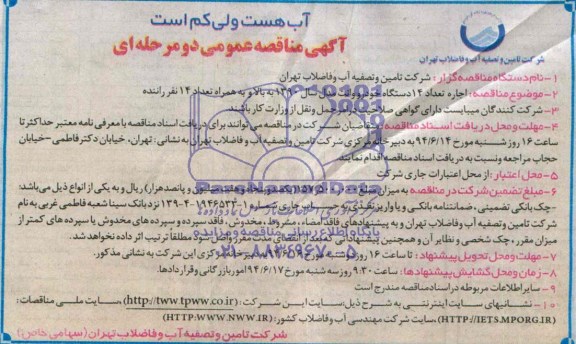 آب هست ولی کم است
آگهی مناقصه عمومی دو مرحله ای
شرکت تامین و تصفیه آب و فاضلاب تهران
۱- نام دستگاه مناقصه گزار: شرکت تامین و تصفیه آب و فاضلاب تهران
۲- موضوع مناقصه: اجاره تعداد ۱۴ دستگاه خودرو وانت مدل سال ۱۳۹۰ به بالا و به همراه تعداد ۱۴ نفر راننده
۳- شرکت کنندگان میبایست دارای گواهی صلاحیت حمل و نقل از وزارت کار باشند.
۴- مهلت و محل دریافت اسناد مناقصه: متقاضیان شرکت در مناقصه می توانند برای دریافت اسناد مناقصه با معرفی نامه معتبر حداکثر تا
ساعت ۱۶ روز شنبه مورخ ۹۴/۶/۱۴ به دبیرخانه مرکزی شرکت تامین و تصفیه آب و فاضلاب تهران به نشانی: تهران، خیابان دکتر فاطمی-خیابان
حجاب مراجعه ونسبت به دریافت اسناد مناقصه اقدام نمایند
۵- محل اعتبار: از محل اعتبارات جاری شرکت
۶- مبلغ تضمین شرکت در مناقصه به میزان مبلغ ریال و به یکی از انواع ذیل می باشد:
-چک بانکی تضمینی، ضمانتنامه بانکی و یا واریز نقدی به حساب جاری شماره ۱-۱۹۴۶۵۳۳-۴-۱۳۹ نزد بانک سینا شعبه فاطمی غربی به نام
شرکت تامین و تصفیه آب و فاضلاب تهران و به پیشنهادهای فاقد امضاء، مشروط، مخدوش، فاقد سپرده و سپرده های مخدوش یا سپرده های کمتر از
میزان مقرر، چک شخصی و نظایر آن و همچنین پیشنهاداتی که بعد از انقضای مدت مقرر واصل شود مطلقا ترتیب اثر داده نخواهد شد.
۷- مهلت و محل تحویل پیشنهاد: تا ساعت ۱۶ روز مرکزی این شرکت به نشانی مذکور.
۸- زمان و محل گشایش پیشنهادها: ساعت ۹:۳۰ روز سه شنبه مورخ ۹۴/۶/۱۷ امور بازرگانی وقراردادها.
۹- سایر اطلاعات مربوطه در اسناد مناقصه مندرج است
۱۰- نشانیهای سایت اینترنتی به شرح ذیل: سایت این شرکت: (http://tww.tpww.co.ir) سایت ملی مناقصات:
(HTTP://IETS.MPORG.IR)، سایت شرکت مهندسی آب و فاضلاب کشور: (HTTP:WWW.NWW.IR)
شرکت تامین و تصفیه آب و فاضلاب تهران (سهامی خاص)
پایگاه اطلاع رسانی مناقصه و مزایده
۰۲۱-۸۸۳۴۹۶۷۰